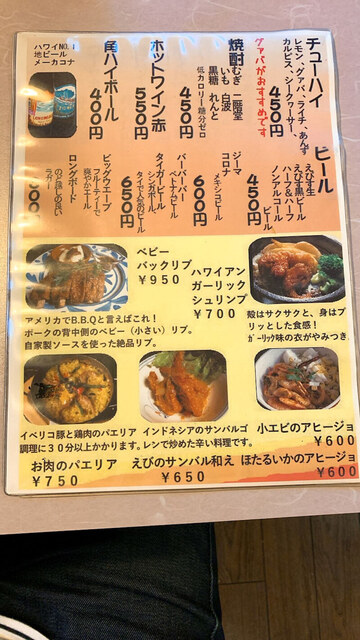 チューハイ
レモン、グァバ、ライチ、あんず
カルピス、シークヮーサー、
450円
グァバがおすすめです
焼酎
むぎ 二階堂
いも 白波
黒糖 れんと
低カロリー糖分ゼロ
450円
ホットワイン赤
500円
角ハイボール
400円
ハワイNO.1
地ビール
メーカコナ
ビール
えびす生
えびす黒ビール
ハーフ&ハーフ
ノンアルコール
ビール
450円
ジーマ
コロナ
メキシコビール
600円
バーバーバー
ベトナムビール
タイガービール
シンガポール
タイで人気のビール
650円
ビッグウェーブ
フルーティーで
爽やかエール
ロングボード
のど越しの良い
ラガー
ベビー
バックリブ
￥950
ハワイアン
ガーリック
シュリンプ
￥700
アメリカでB.B.Qと言えばこれ!
ポークの背中側のベビー（小さい）リブ。
自家製ソースを使った絶品リブ。
殻はサクサクと、身はプ
リッとした食感!
ｶﾞｰﾘｯｸ味の衣がやみつき
イベリコ豚と鶏肉のパエリア
調理に３０分以上かかります。
お肉のパエリア
￥750
インドネシアのサンバルゴ
レンで炒めた辛い料理です。
えびのサンバル和え
￥650
小エビのアヒージョ
￥600
ほたるいかのアヒージョ
￥600